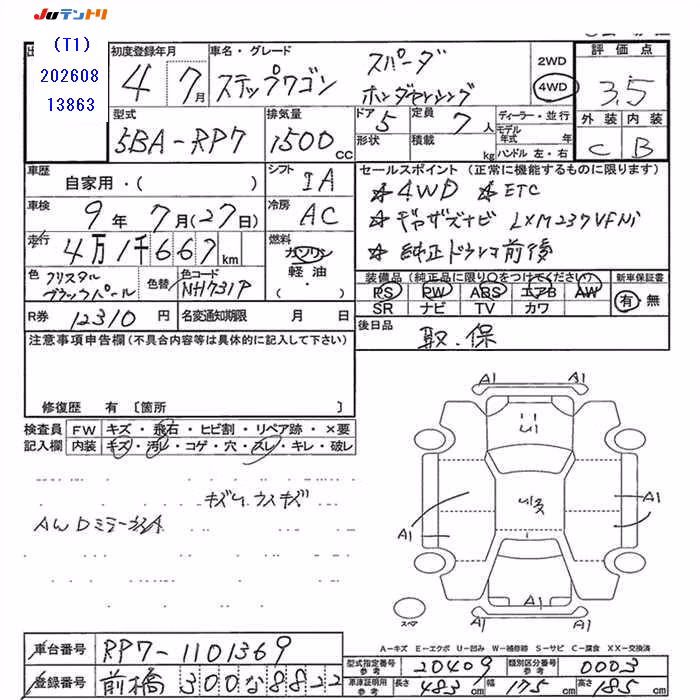 JUテントリ
(T1)
202608
13863
初度登録年月
4 7月
車名・グレード
ステップワゴン スパーダ
ホンダセンシング
2WD
4WD
評価点
3.5
外装 内装
C B
型式
5BA-RP7
排気量
1500 CC
ドア 5
形状
定員 7 人
積載 kg
ディーラー・並行
モデル年式 年
ハンドル 左・右
車歴
自家用・( )
シフト IA
車検
9年 7月(27日)
冷房 AC
走行
4万1千667 km
燃料
ガソリン
軽油・
( )
セールスポイント (正常に機能するものに限ります)
☆4WD ☆ETC
☆ギャザズナビ LXM237VFNi
☆純正ドラレコ前後
色
クリスタル
ブラックパール
色替
色コード
NH731P
装備品 (純正品に限り○をつけてください)
PS PW ABS エアB AW
SR ナビ TV カワ
新車保証書
有・無
R券 12310 円
名変通知期限 月 日
後日品
取・保
注意事項申告欄 (不具合内容等は具体的に記入して下さい)
修復歴 有 〔箇所 〕
検査員
記入欄
FW キズ・飛石・ヒビ割・リペア跡・×要
内装 キズ・汚レ・コゲ・穴・スレ・キレ・破レ
キズU ウスキズ
A1 A1
A1 A1
A1
A1 A1
スマ
A-キズ E-エクボ U-凹み W-補修跡 S-サビ C-腐食 XX-交換済
車台番号 RP7-1101369
登録番号 前橋 300な8822
型式指定番号
参考
20409
類別区分番号
参考
0003
車庫証明用
参考
長さ 483 cm
幅 175 cm
高さ 185 cm